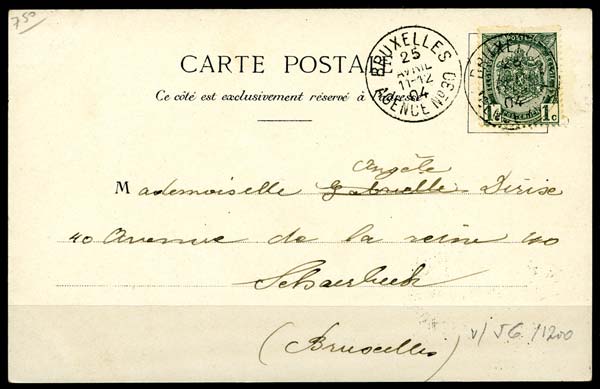 750
CARTE POSTA
BRUXELLES
25
AVRIL
11-12
04
AGENCE N
POSTES
1c 1c
Ce côté est exclusivement réservé à l'adresse.
Angèle
Mademoiselle Gabrielle Dirix
40 Avenue de la reine 40
Schaerbeek
(Bruxelles)
v/ JG /1200